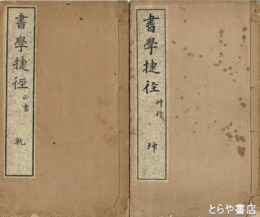 書學捷徑
正書
乾
書學捷徑
坤
とらや書店